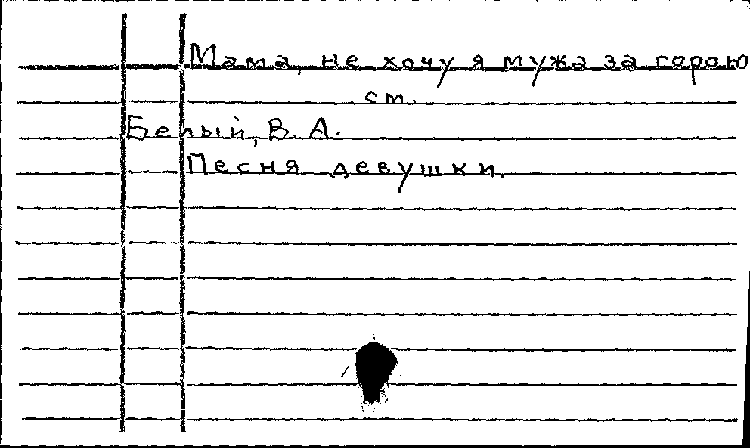 Мама, не хочу я мужа за горою
см.
Белый, В. А.
Песня девушки.